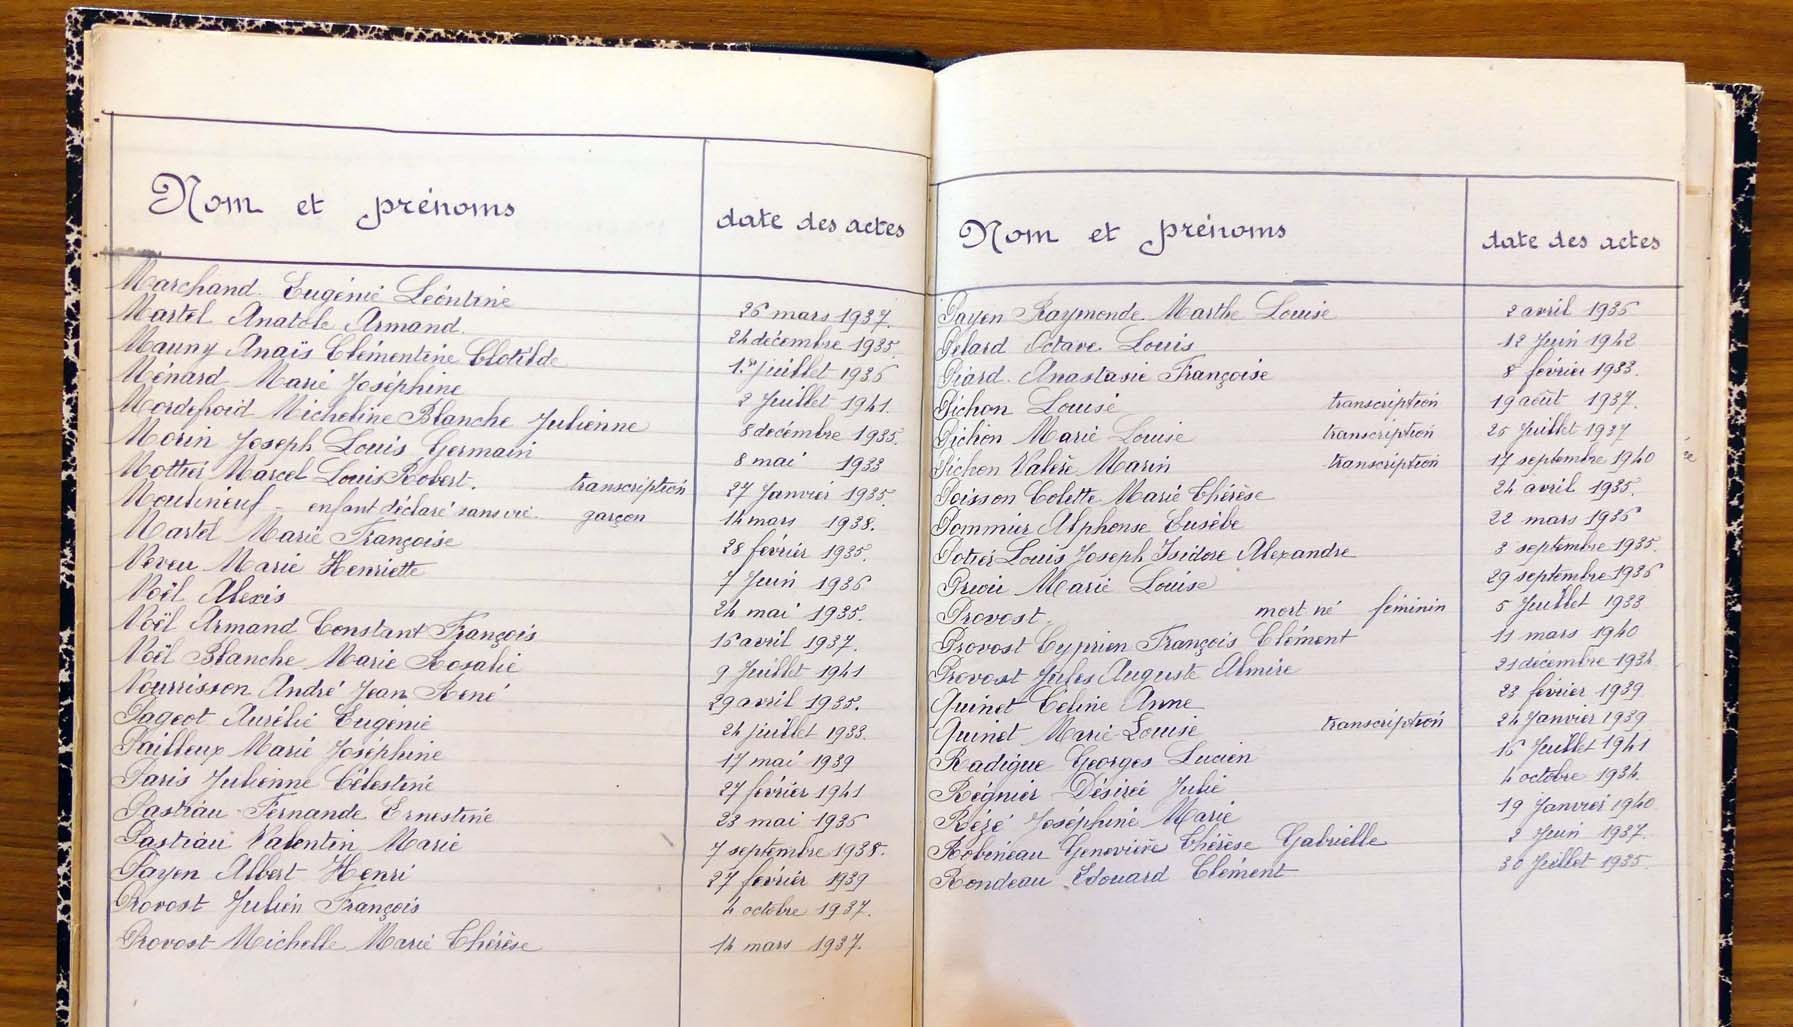 Nom et prénoms date des actes
Marchand Eugénie Léontine 26 mars 1937.
Martel Anatole Armand. 24 décembre 1935.
Mauny Anaïs Clémentine Clotilde 1er juillet 1936
Ménard Marie Joséphine 2 Juillet 1941.
Mordefroid Micheline Blanche Julienne 8 décembre 1935.
Morin Joseph Louis Germain 8 mai 1933
Mottier Marcel Louis Robert. transcription 27 Janvier 1935.
Moulineuf - enfant déclaré sans vie. garçon 14 mars 1938.
Martel Marie Françoise 28 février 1935.
Neveu Marie Henriette 7 Juin 1936
Noël Alexis 24 mai 1935.
Noël Armand Constant François 16 avril 1937.
Noël Blanche Marie Rosalie 9 Juillet 1941
Nourrisson André Jean René 29 avril 1935.
Pageot Aurélie Eugénie 24 juillet 1933.
Pailloux Marie Joséphine 17 mai 1939
Paris Julienne Célestine 27 février 1941
Pastiau Fernande Ernestine 23 mai 1936
Pastiau Valentin Marie 7 septembre 1938.
Payen Albert Henri 27 février 1939
Provost Julien François 4 octobre 1937.
Provost Michelle Marie Thérèse 14 mars 1937.
Nom et prénoms date des actes
Payen Raymonde Marthe Louise 2 avril 1936
Pelard Octave Louis 12 Juin 1942
Piard Anastasie Françoise 8 février 1933.
Pichon Louise transcription 19 août 1937.
Pichon Marie Louise transcription 26 Juillet 1937
Pichon Valère Marin transcription 17 septembre 1940
Poisson Colette Marie Thérèse 24 avril 1935.
Pommier Alphonse Eusèbe 22 mars 1936
Potier Louis Joseph Isidore Alexandre 3 septembre 1935.
Marie Louise 29 septembre 1936
Provost. mort né féminin 5 Juillet 1933
Provost Cyprien François Clément 11 mars 1940
Provost Jules Auguste Almire 21 décembre 1934
Quinet Céline Anne 23 février 1939
Quinet Marie-Louise transcription 24 Janvier 1939
Radigue Georges Lucien 16 Juillet 1941
Régnier Désirée Julie 4 octobre 1934.
Rézé Joséphine Marie 19 Janvier 1940
Robineau Geneviève Thérèse Gabrielle 2 Juin 1937.
Rondeau Edouard Clément 30 Juillet 1935